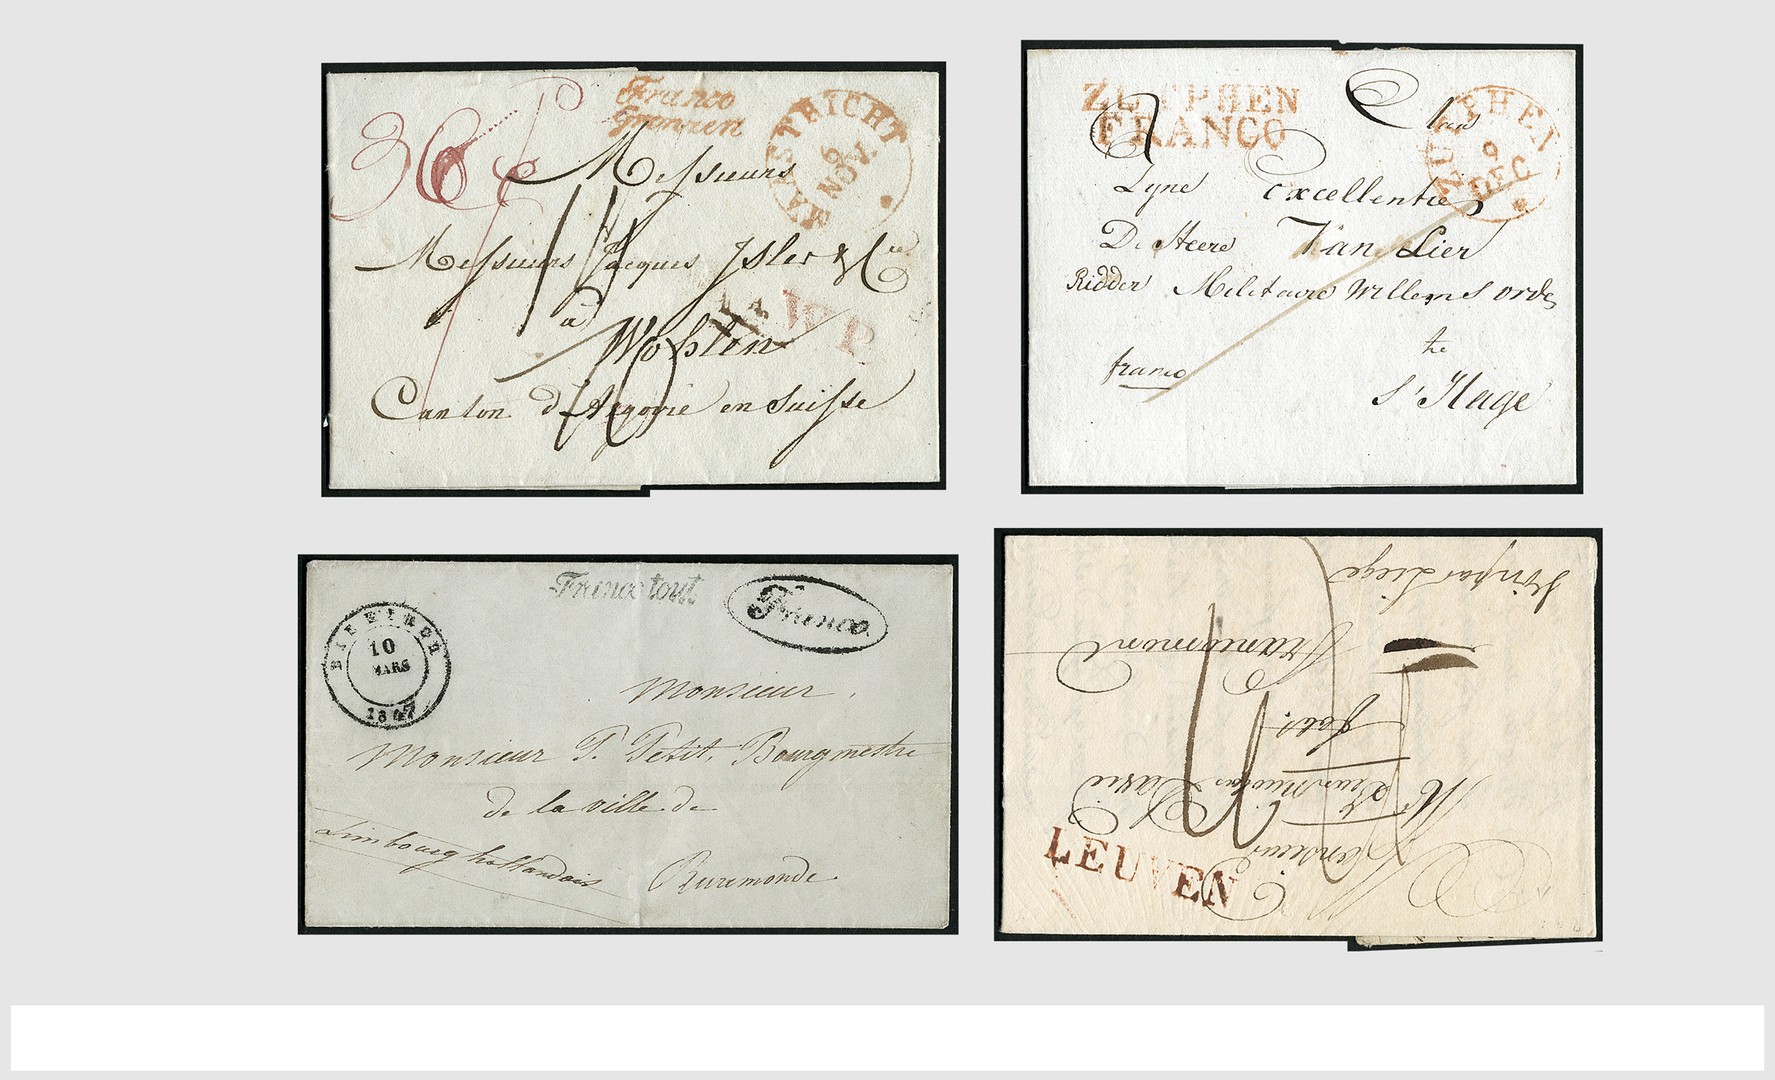 Franco
Grenzen
MAASTRICHT
6
NOV.
36
Messieurs
Messieurs Jacques Isler & Cie
à
Wohlen
Canton d'Argovie en Suisse
ZUTPHEN
FRANCO
ZUTPHEN
9
DEC
Aan
Zyne Excellentie
De Heere Van Lier
Ridder Militaire Willems orde
te
franco
s'Hage
Franco tout
Franco.
10
MARS
1847
Monsieur
Monsieur P. Petit, Bourgmestre
de la ville de
Limbourg hollandais
Ruremonde
LEUVEN
Monsieur
Mr
fils
Francomont
par Liège